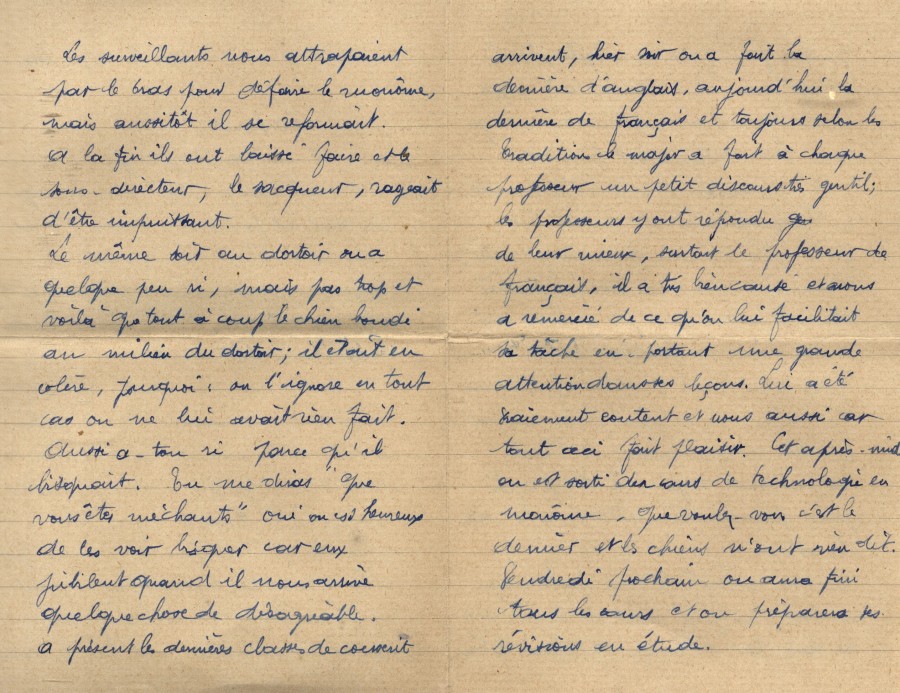 Les surveillants nous attrapaient
par le bras pour défaire le monôme,
mais aussitôt il se reformait.
A la fin ils ont laissé faire et le
sous-directeur, le sacqueur, rageait
d'être impuissant.
Le même soir au dortoir on a
quelque peu ri, mais pas trop et
voilà que tout à coup le chien bondi
au milieu du dortoir; il était en
colère, pourquoi; on l'ignore en tout
cas on ne lui avait rien fait.
Aussi a-t-on ri parce qu'il
bisquait. Tu me diras "que
vous êtes méchants" oui on est heureux
de les voir bisquer car eux
jubilent quand il nous arrive
quelque chose de désagréable.
A présent les dernières classes de
arrivent, hier soir on a fait la
dernière d'anglais, aujourd'hui la
dernière de français et toujours selon les
tradition le major a fait à chaque
professeur un petit discours très gentil;
les professeurs y ont répondu
de leur mieux, surtout le professeur de
français, il a très bien causé et nous
a remercié de ce qu'on lui facilitait
sa tâche en portant une grande
attention dans ses leçons. Lui a été
vraiement content et nous aussi car
tout ceci fait plaisir. Cet après-midi
on est sorti des cours de technologie en
monôme, que voulez-vous c'est le
dernier et les chiens n'ont rien dit.
Vendredi prochain on aura fini
tous les cours et on préparera ses
révisions en étude.